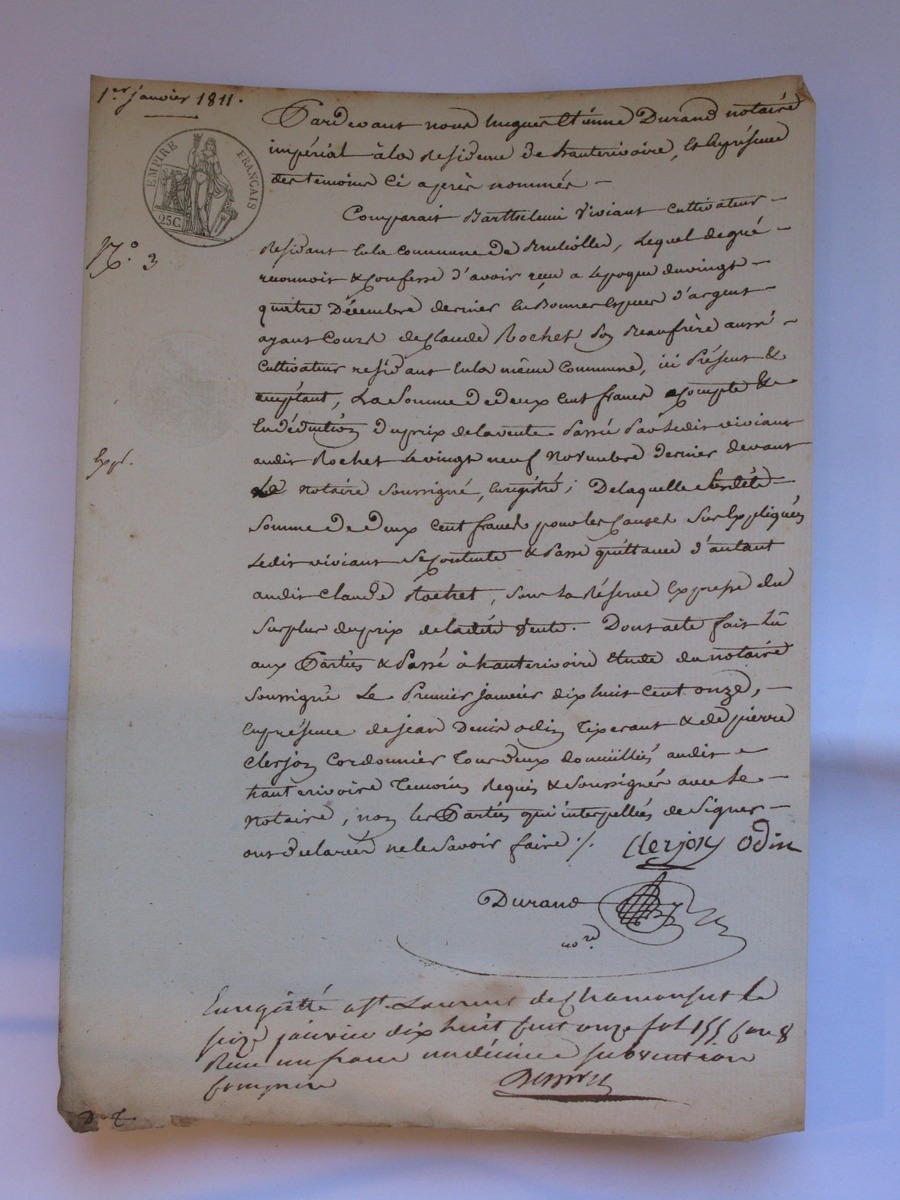 1er janvier 1811.
EMPIRE FRANÇAIS
25C
N.° 3
Expé.
Pardevant nous hugues Etienne Durand notaire
impérial à la Residence de hauterivoire, En présence
des temoins Ci après nommés —
Comparait Barthelemi Viviant Cultivateur —
Residant En la Commune De Brullolles, Lequel de gré —
reconnoit & Confesse d'avoir reçu a L'epoque du vingt —
quatre Décembre dernier En Bonnes Espèces d'argent —
ayant Cours de Claude Rochet Son Beaufrère aussi —
Cultivateur residant En la même Commune, ici Présent &
acceptant, La Somme De deux Cent francs acompte &
En déduction Du prix de la vente Passée Par Ledit viviant
audit Rochet Le vingt neuf Novembre Dernier devant
Le notaire Soussigné, Enregistré; De laquelle Susdite —
Somme De deux Cent francs pour les Causes Sus Expliquées
Ledit viviant Se Contente & Passe quittance d'autant
audit Claude Rochet, Sous La Réserve Expresse du
Surplus du prix de la dite vente. Dont acte fait Lû
aux Parties & Passé à hauterivoire Etude du notaire
Soussigné Le Premier janvier dix huit Cent onze, —
En présence de jean Denis odin Tixerant & de pierre
Clerjon Cordonnier Tous deux domiciliés audit —
hauterivoire Temoins Requis & Soussignés avec le —
Notaire, non les Parties qui interpellées de Signer —
ont Déclarées ne le Savoir faire ./.
Clerjon Odin
Durand
nore
Enregistré a St Laurent de Chamousset le
seize janvier dix huit cent onze fol 155 Case 8
Reçu un franc un décime subvention
comprise